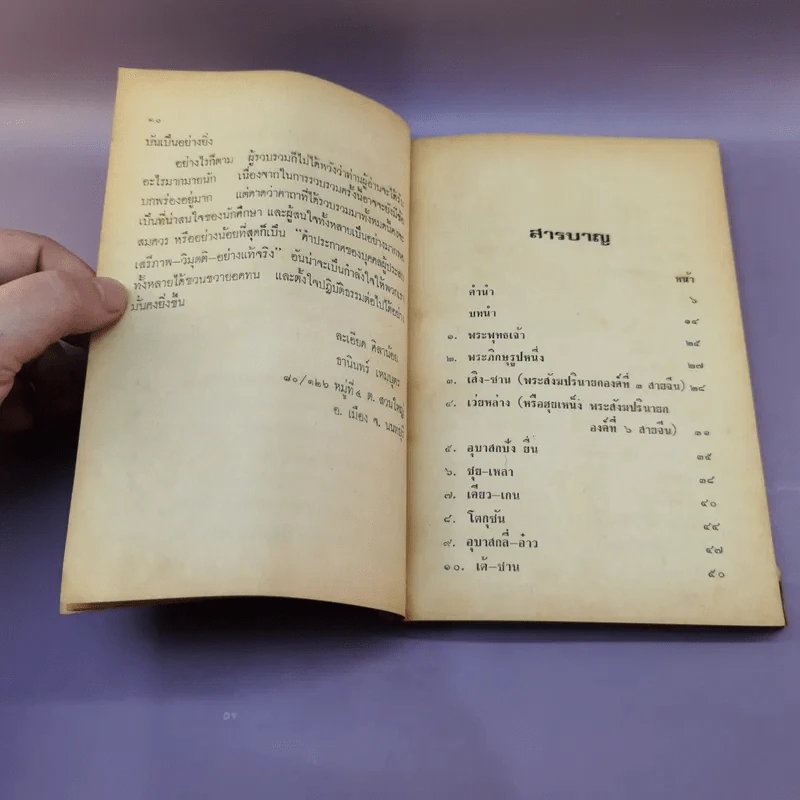 ๓๐
บันเป็นอย่างยิ่ง
อย่างไรก็ตาม ผู้รวบรวมก็ไม่ได้หวังว่าท่านผู้อ่านจะได้
อะไรมากมายนัก เนื่องจากในการรวบรวมครั้งนี้อาจจะยังมีข้อ
บกพร่องอยู่มาก แต่คาดว่าคาถาที่ได้รวบรวมมาทั้งหมดนี้คง
เป็นที่น่าสนใจของนักศึกษา และผู้สนใจทั้งหลายเป็นอย่างมาก
สมควร หรืออย่างน้อยที่สุดก็เป็น "คำประกาศของบุคคลผู้ประสบ
เสรีภาพ–วิมุตติ–อย่างแท้จริง" อันน่าจะเป็นกำลังใจให้พวกเรา
ทั้งหลายได้ขวนขวายอดทน และตั้งใจปฏิบัติธรรมต่อไปได้อย่าง
มั่นคงยิ่งขึ้น
ละเอียด ศิลาน้อย
ธานินทร์ เหมบุตร
๘๐/๑๒๖ หมู่ที่ ๔ ต. สวนใหญ่
อ. เมือง จ. นนทบุรี
สารบาญ
หน้า
คำนำ ๖
บทนำ ๑๔
๑. พระพุทธเจ้า ๒๕
๒. พระภิกษุรูปหนึ่ง ๒๗
๓. เสิง–ซาน (พระสังฆปรินายกองค์ที่ ๓ สายจีน) ๒๘
๔. เว่ยหล่าง (หรือฮุยเหน็ง พระสังฆปรินายก
องค์ที่ ๖ สายจีน) ๓๑
๕. อุบาสกปัง ยื่น ๓๕
๖. ซุย–เหลา ๓๘
๗. เคียว–เกน ๔๐
๘. โตกุซัน ๔๔
๙. อุบาสกลี่–อ๋าว ๔๗
๑๐. เต้–ซาน ๕๐